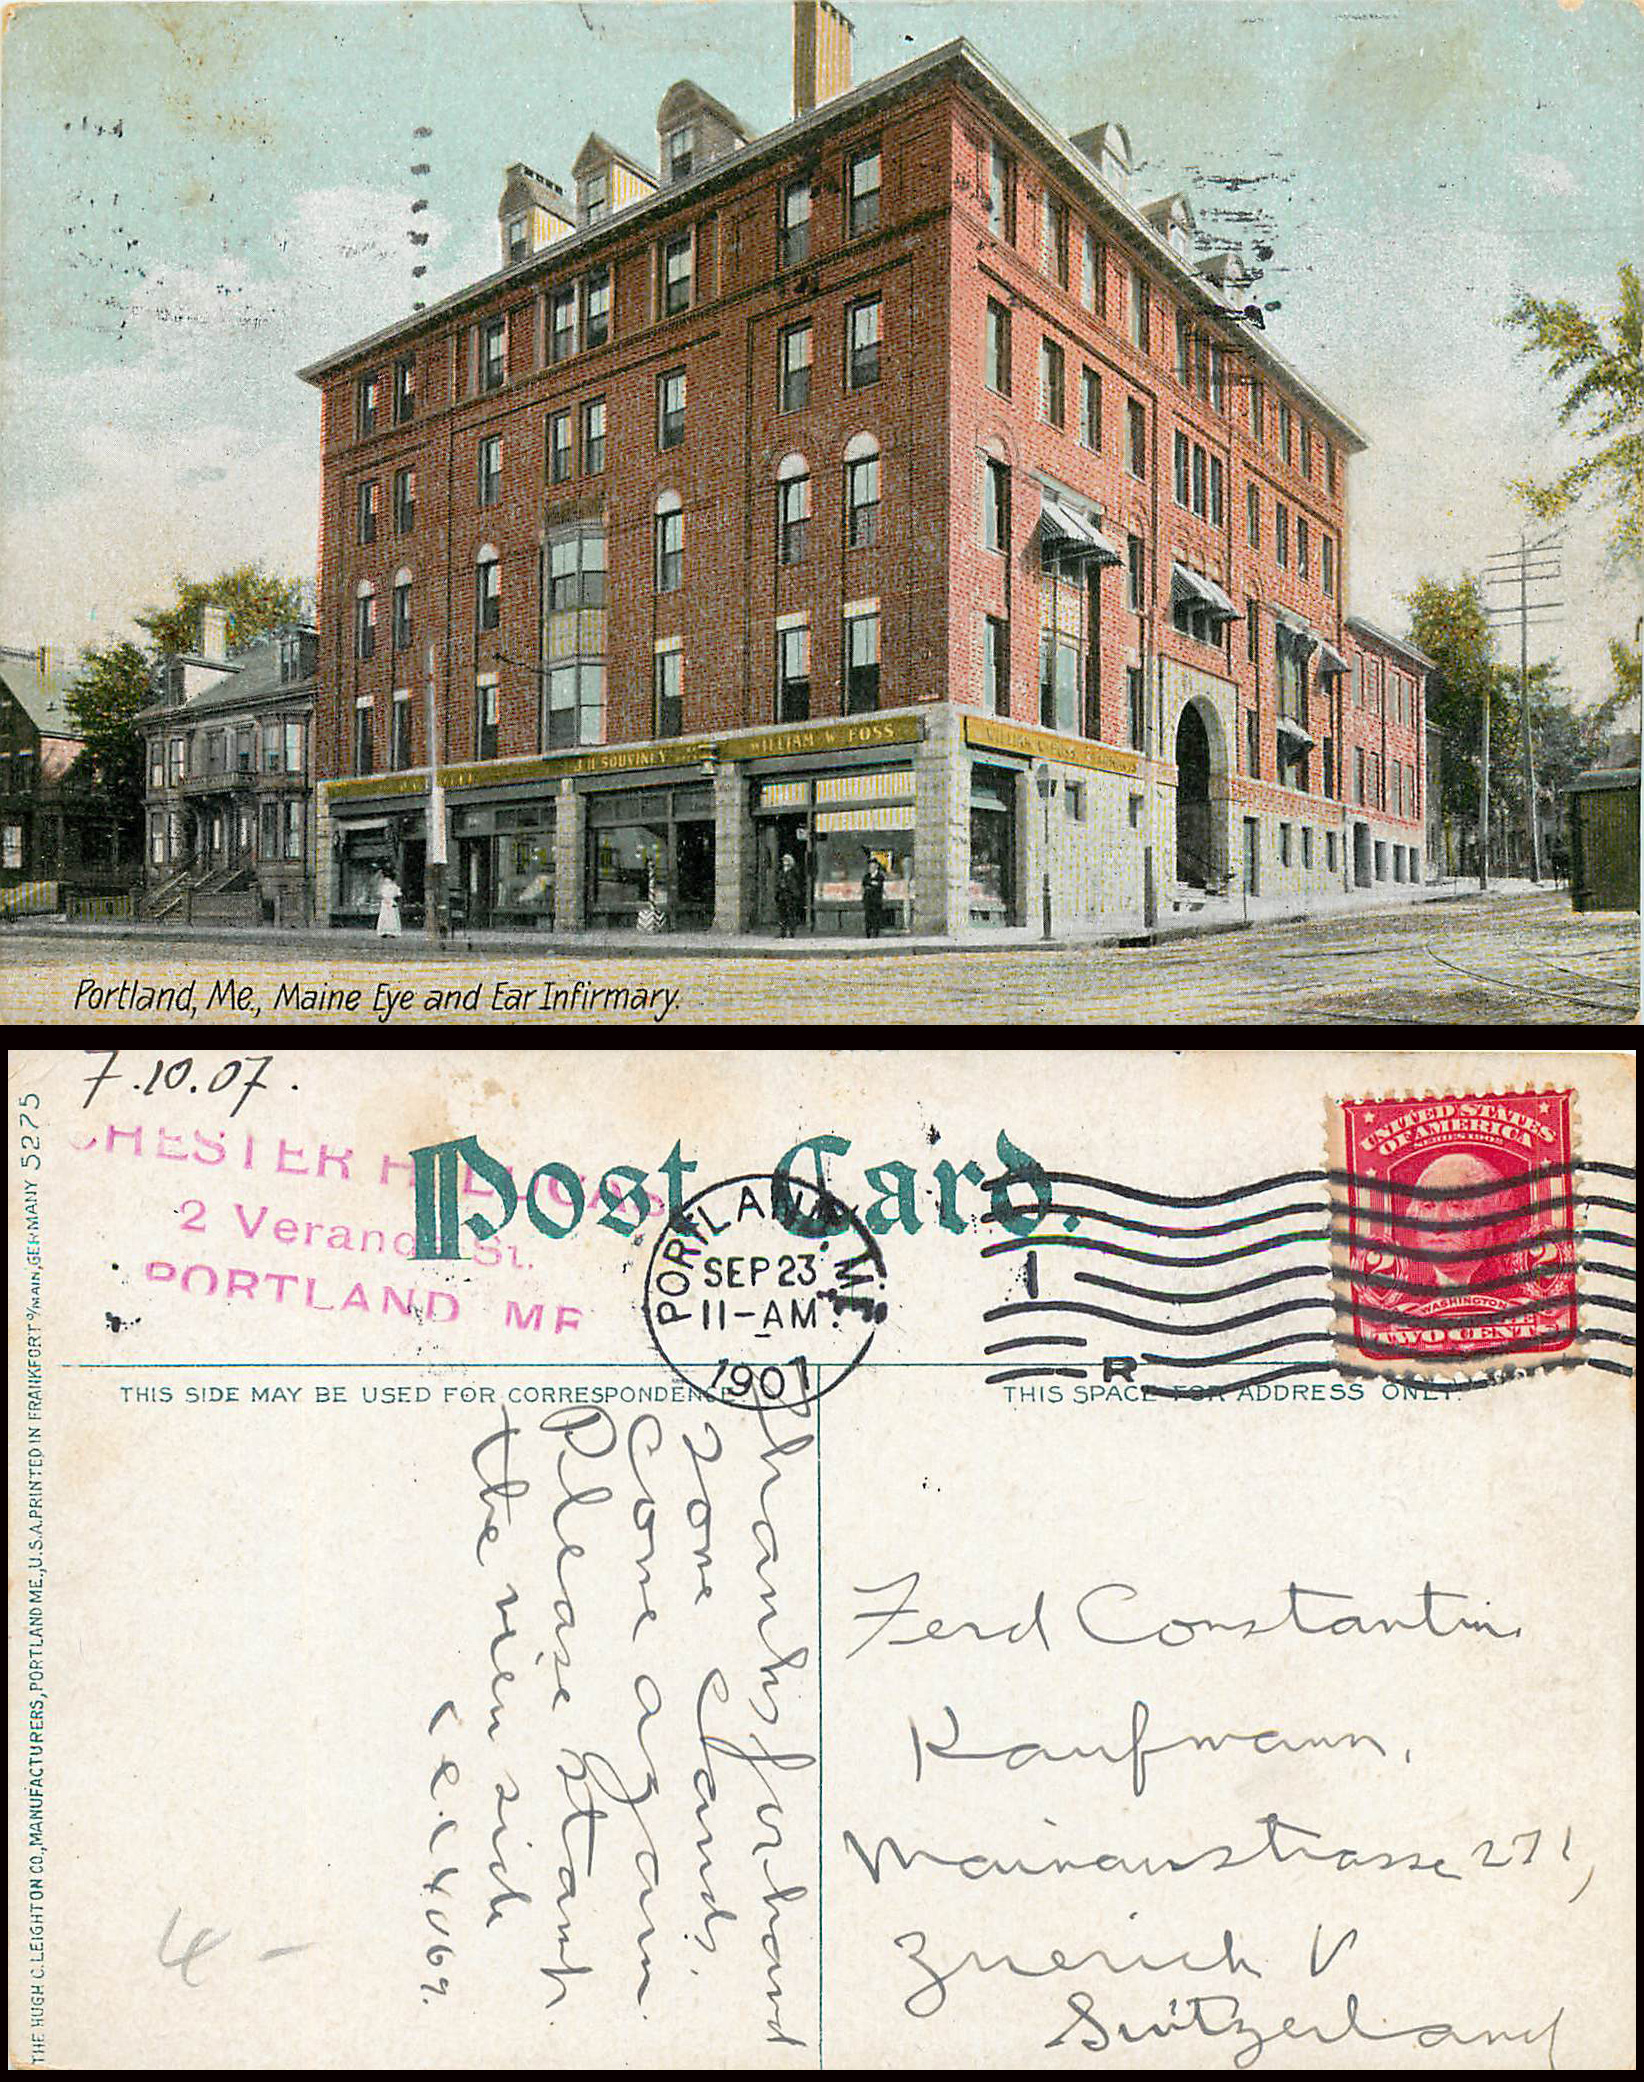 J.H. SOUVINEY
WILLIAM W. FOSS
WILLIAM W. FOSS
Portland, Me., Maine Eye and Ear Infirmary.
7.10.07.
CHESTER H. LUCAS
2 Veranda St.
PORTLAND ME
Post Card.
PORTLAND, ME.
SEP 23
11-AM
1907
1
R
UNITED STATES
OF AMERICA
SERIES 1902
2 2
WASHINGTON
TWO CENTS
THIS SIDE MAY BE USED FOR CORRESPONDENCE.
THIS SPACE FOR ADDRESS ONLY.
Thanks for hand
some Cards.
Come again.
Please stamp
the view side
Ferd Constantin
Kaufmann,
Mainaustrasse 271,
Zuerich V
Switzerland
4 -
THE HUGH C. LEIGHTON CO., MANUFACTURERS, PORTLAND ME., U.S.A. PRINTED IN FRANKFORT o/MAIN, GERMANY 5275